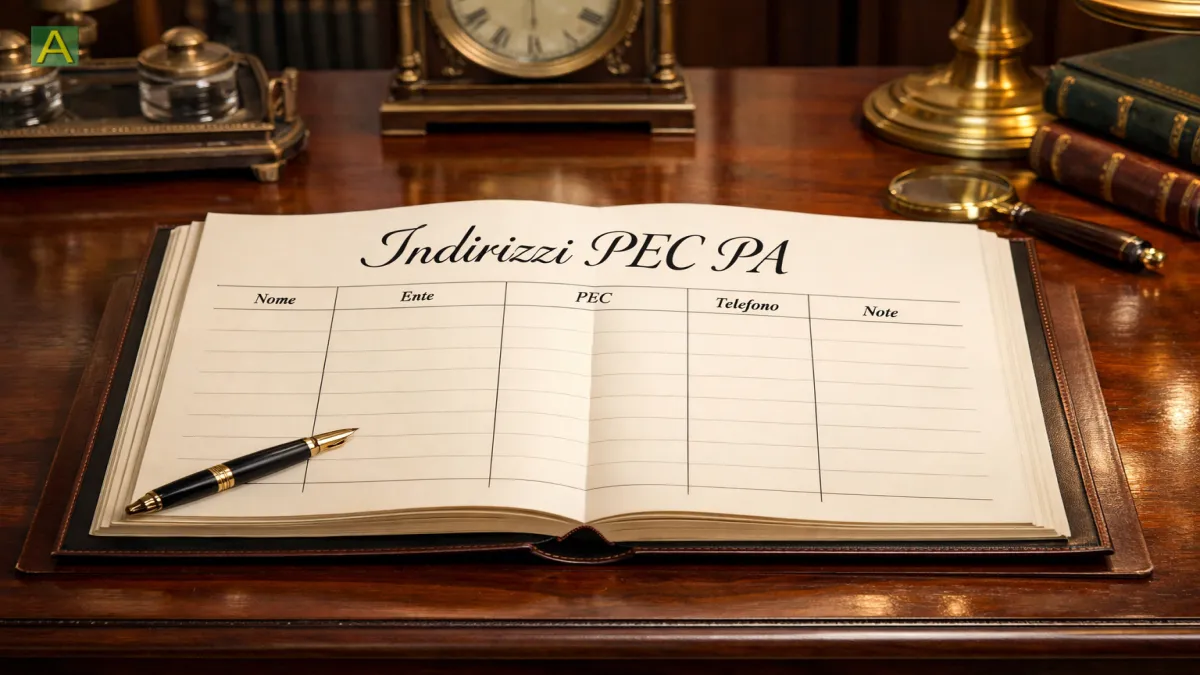 A
Indirizzi PEC PA
Nome Ente PEC Telefono Note